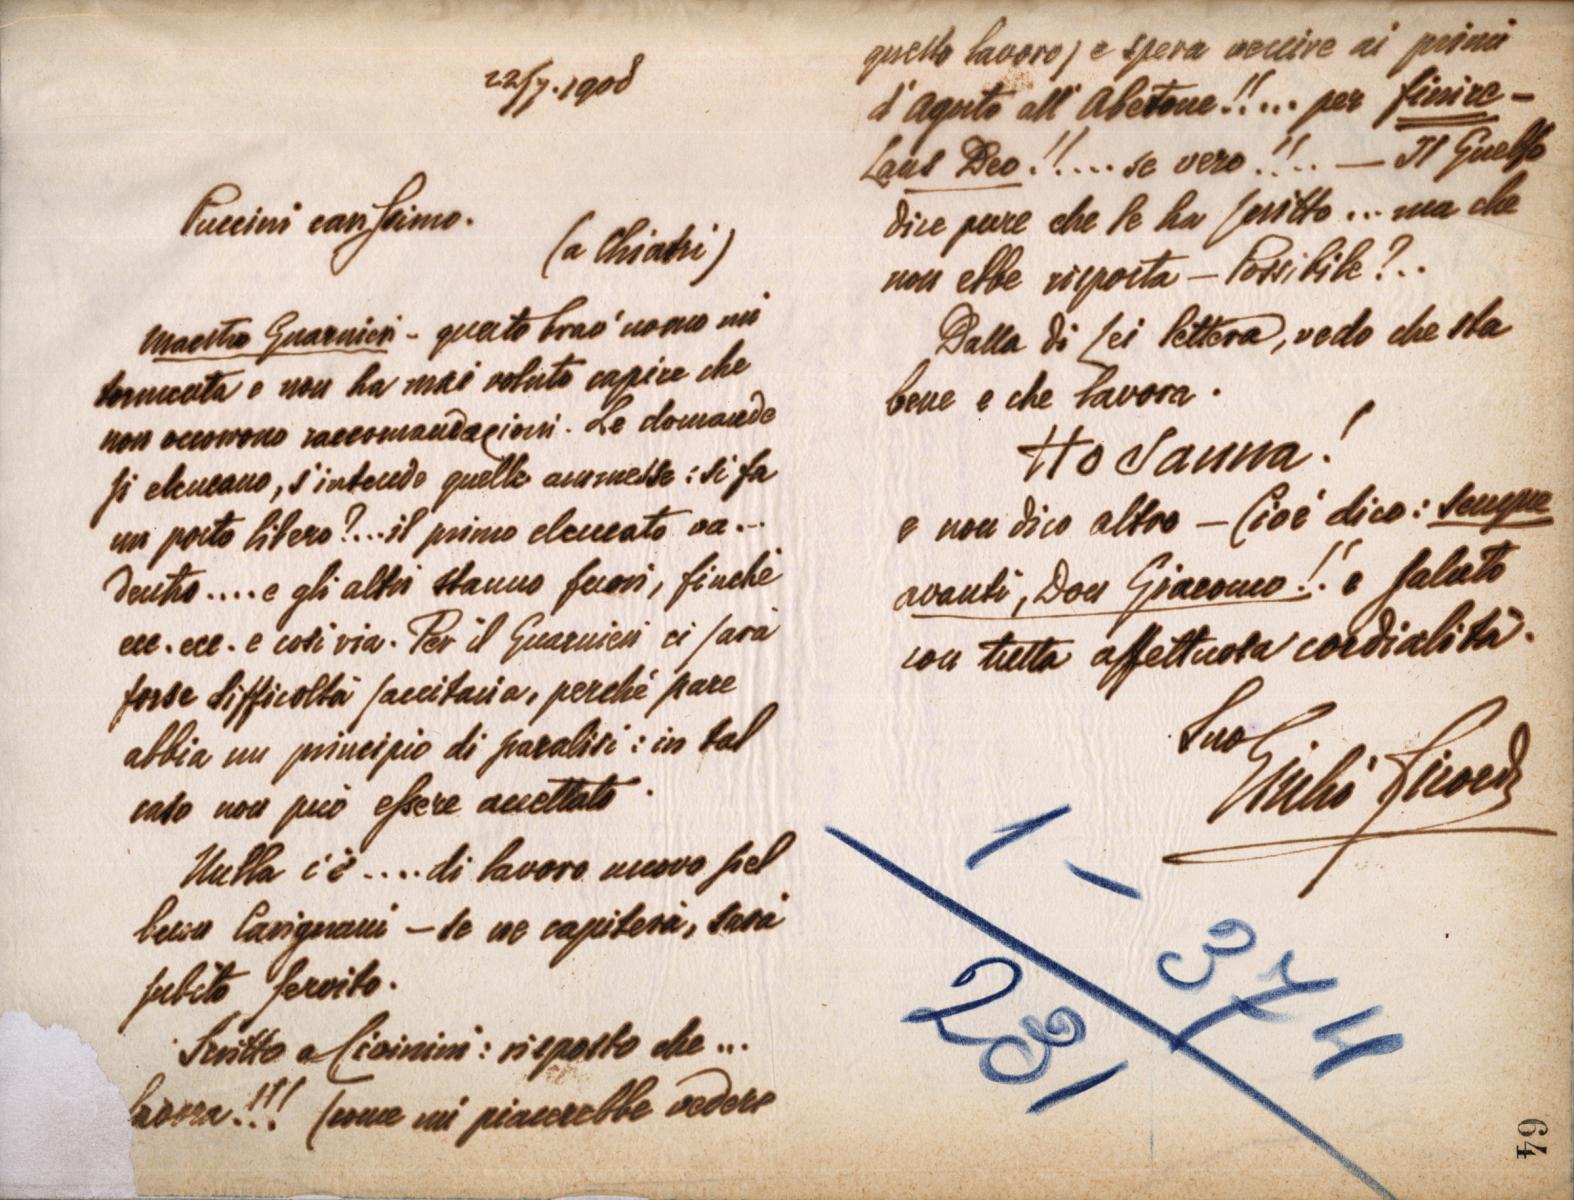 22/7.1908
Puccini carissimo.
(a Chiatri)
Maestro Guarnieri - questo brav'uomo mi
tormenta e non ha mai voluto capire che
non occorrono raccomandazioni. Le domande
si elencano, s'intende quelle ammesse: si fa
un posto libero?...il primo elencato va...
dentro....e gli altri stanno fuori, finchè
ecc. ecc. e così via. Per il Guarnieri ci sarà
forse difficoltà sanitaria, perché pare
abbia un principio di paralisi: in tal
caso non può essere accettato.
Nulla c'è....di lavoro nuovo pel
buon Carignani - se ne capiterà, sarà
subito servito.
Scritto a Civinini: risposto che...
lavora!!! (come mi piacerebbe vedere
questo lavoro) e spera venire ai primi
d'Agosto all'Abetone!!... per finire -
Laus Deo!!....se vero!!.. — Il Guelfo
dice pure che le ha scritto...ma che
non ebbe risposta - Possibile?..
Dalla di Lei lettera, vedo che sta
bene e che lavora.
Ho Sanna!
e non dico altro - Cioè dico: sempre
avanti, Don Giacomo!! e saluto
con tutta affettuosa cordialità.
Suo
Giulio Ricordi
64